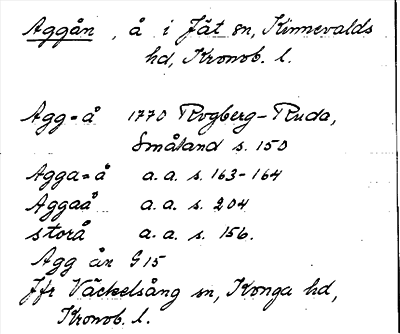 Aggån, å i Jät sn, Kinnevalds
hd, Kronob. l.
Agg=å 1770 Rogberg-Ruda,
Småland s. 150
Agga=å a.a. s. 163-164
Aggaå a.a. s. 204
storå a.a. s. 156.
Agg ån G15
Jfr Väckelsång sn, Konga hd,
Kronob. l.